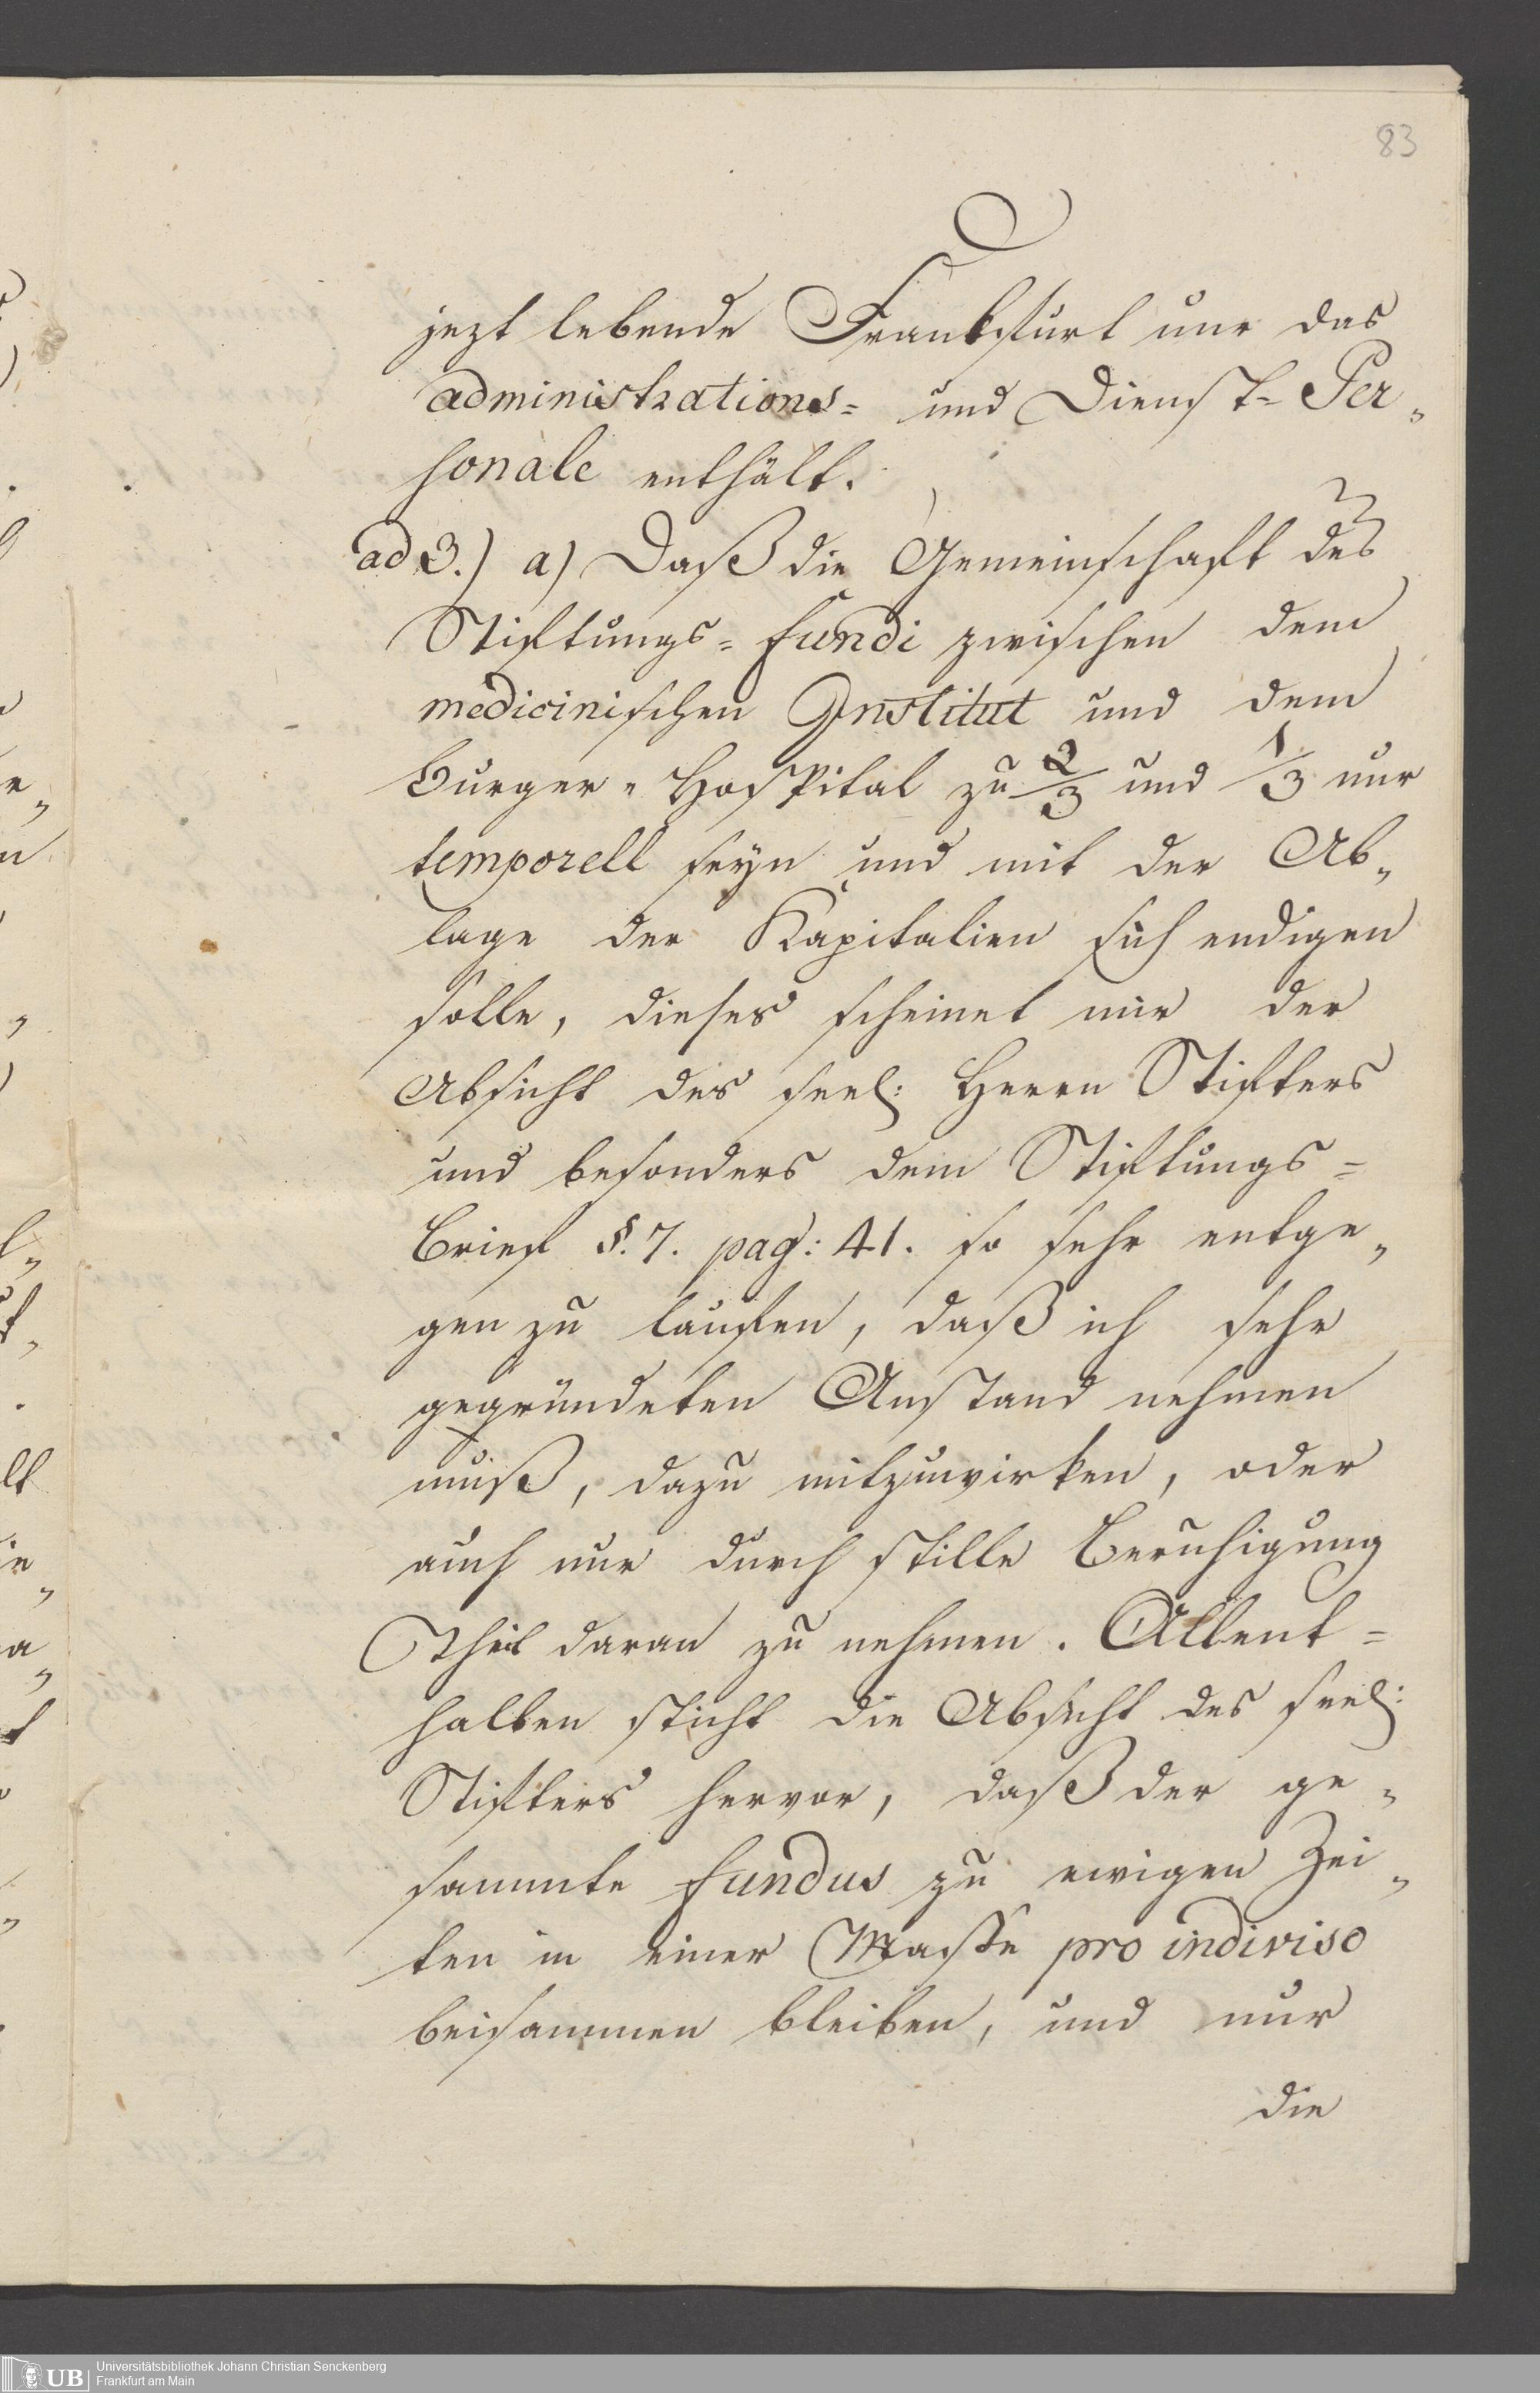 83
jezt lebende Frankfurt nur das
administrations= und Dienst= Per„
sonale enthält.
ad 3.) a) Daß die Gemeinschaft des
Stiftungs= fundi zwischen dem
medicinischen Institut und dem
Burger „ Hospital zu 2/3 und 1/3 nur
temporell seyn und mit der Ab„
lage der Kapitalien sich endigen
solle, dieses scheinet mir der
Absicht des seel: Herrn Stifters
und besonders dem Stiftungs=
Brief §. 7. pag: 41. so sehr entge„
gen zu laufen, daß ich sehr
gegründeten Anstand nehmen
muß, dazu mitzuwirken, oder
auch nur durch stille Beruhigung
Theil daran zu nehmen. Allent=
halben sticht die Absicht des seel:
Stifters hervor, daß der ge„
sammte fundus zu ewigen Zei„
ten in einer Masse pro indiviso
beisammen bleiben, und nur
die
UB
Universitätsbibliothek Johann Christian Senckenberg
Frankfurt am Main